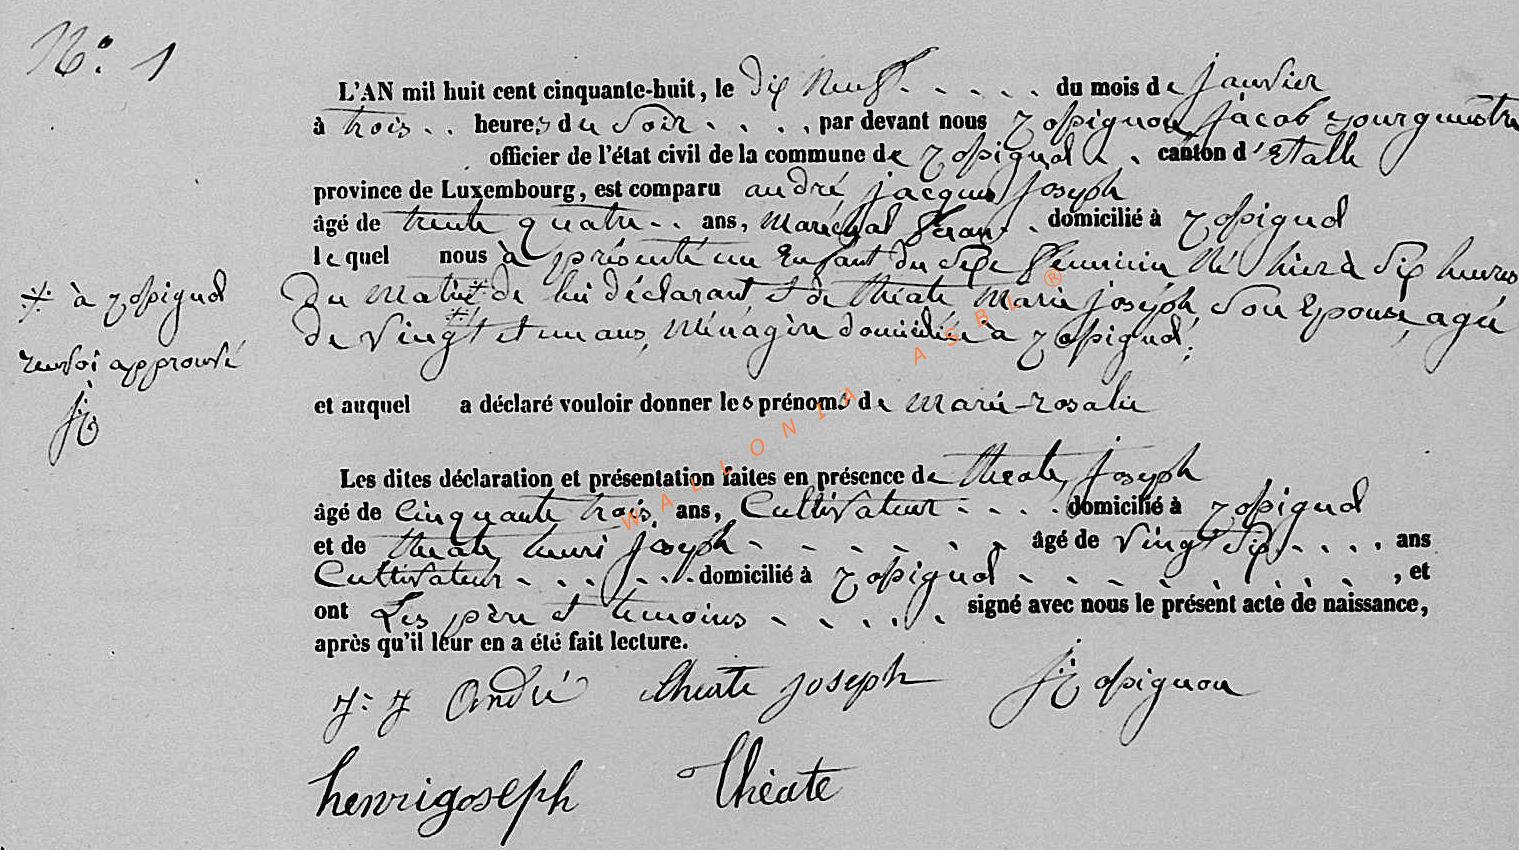 N°: 1
L'AN mil huit cent cinquante-huit, le dix Neuf . . . . . du mois de janvier
à trois . . heures du Soir . . . . , par devant nous rossignon, jacob bourgmestre
officier de l'état civil de la commune de rossignol . . canton d'Etalle
province de Luxembourg, est comparu andré, jacques joseph
âgé de trente quatre . . ans, Maréchal ferant . domicilié à rossignol
lequel nous à présenté un Enfant du Sexe féminin Né hier à Six heures
Du Matin de lui déclarant et de théate Marie joseph, Son Epouse, agée
※ à rossignol
De Vingt et un ans, Ménagère domiciliée à rossignol;
renvoi approuvé
JR
et auquel a déclaré vouloir donner les prénoms de Marie-rosalie
Les dites déclaration et présentation faites en présence de théate, joseph
âgé de Cinquante trois, ans, Cultivateur . . . . domicilié à rossignol
et de théate henri joseph . . . . . . . âgé de Vingt Six . . . . , ans
Cultivateur . . . . . . . domicilié à rossignol . . . . . . . . , et
ont Les père et temoins . . . . . signé avec nous le présent acte de naissance,
après qu'il leur en a été fait lecture.
J: J André théate joseph JRossignon
henrijoseph théate
WALLONIA ASBL ®